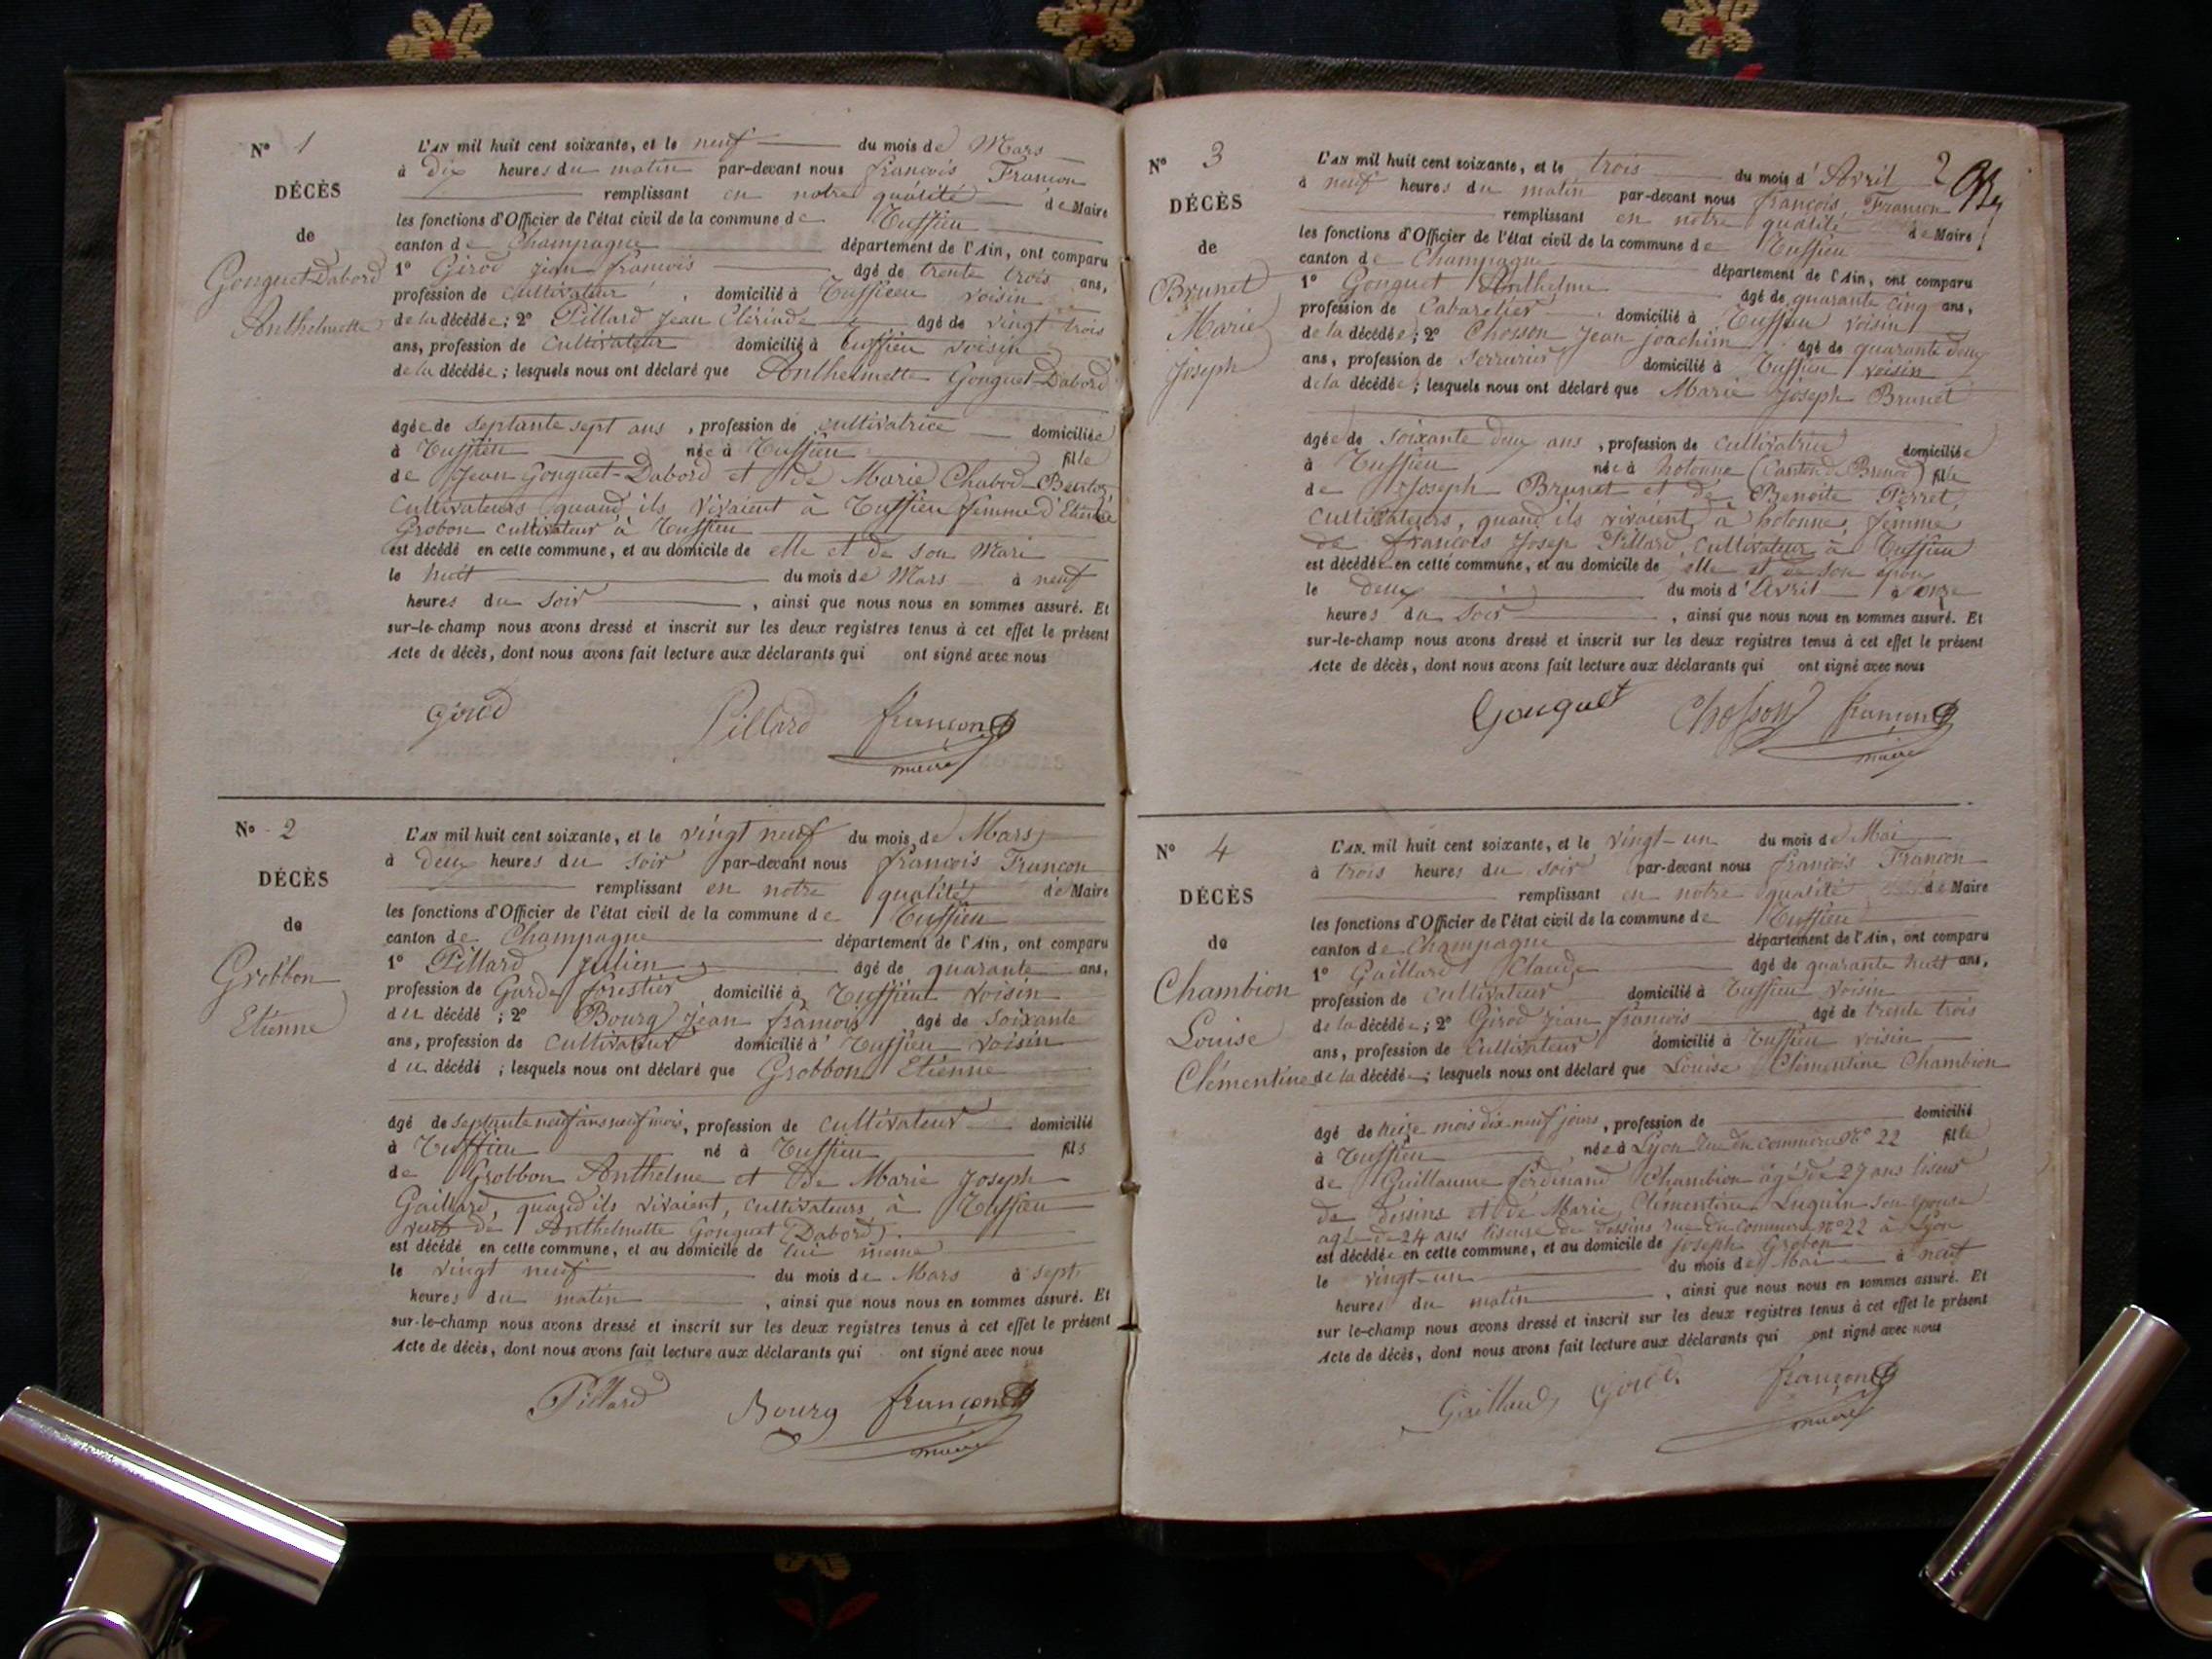 N° 1
DÉCÈS
de
Gonguet-Dabord
Anthelmette
L'AN mil huit cent soixante, et le neuf du mois de Mars
à dix heures du matin par-devant nous françois Françon
remplissant en notre qualité de Maire
les fonctions d'Officier de l'état civil de la commune de Tuffieu
canton de Champagne département de l'Ain, ont comparu
1° Girod jean françois âgé de trente trois ans,
profession de cultivateur, domicilié à Tuffieu voisin
de la décédée; 2° Pillard Jean âgé de vingt trois
ans, profession de cultivateur domicilié à Tuffieu voisin
de la décédée; lesquels nous ont déclaré que Anthelmette Gonguet-Dabord
âgée de septante sept ans, profession de cultivatrice domiciliée
à Tuffieu née à Tuffieu fille
de Jean Gonguet-Dabord et de Marie Chabod-Berlioz
cultivateurs quand ils vivaient à Tuffieu femme d'Etienne
Grobon cultivateur à Tuffieu
est décédé en cette commune, et au domicile de elle et de son Mari
le huit du mois de Mars à neuf
heures du soir, ainsi que nous nous en sommes assuré. Et
sur-le-champ nous avons dressé et inscrit sur les deux registres tenus à cet effet le présent
Acte de décès, dont nous avons fait lecture aux déclarants qui ont signé avec nous
Girod Pillard françon
maire
N° 2
DÉCÈS
de
Grobbon
Etienne
L'AN mil huit cent soixante, et le vingt neuf du mois de Mars
à deux heures du soir par-devant nous françois Françon
remplissant en notre qualité de Maire
les fonctions d'Officier de l'état civil de la commune de Tuffieu
canton de Champagne département de l'Ain, ont comparu
1° Pillard Julien âgé de quarante ans,
profession de Garde forestier domicilié à Tuffieu voisin
du décédé; 2° Bourg jean françois âgé de soixante
ans, profession de cultivateur domicilié à Tuffieu voisin
du décédé; lesquels nous ont déclaré que Grobbon Etienne
âgé de septante neuf ans neuf mois, profession de cultivateur domicilié
à Tuffieu né à Tuffieu fils
de Grobbon Anthelme et de Marie Joseph
Gaillard, quand ils vivaient, cultivateurs à Tuffieu
veuf de Anthelmette Gonguet (Dabord)
est décédé en cette commune, et au domicile de lui meme
le vingt neuf du mois de Mars à sept
heures du matin, ainsi que nous nous en sommes assuré. Et
sur-le-champ nous avons dressé et inscrit sur les deux registres tenus à cet effet le présent
Acte de décès, dont nous avons fait lecture aux déclarants qui ont signé avec nous
Pillard Bourg françon
maire
2
N° 3
DÉCÈS
de
Brunet
Marie
Joseph
L'AN mil huit cent soixante, et le trois du mois d'Avril
à neuf heures du matin par-devant nous françois Françon
remplissant en notre qualité de Maire
les fonctions d'Officier de l'état civil de la commune de Tuffieu
canton de Champagne département de l'Ain, ont comparu
1° Gonguet Anthelme âgé de quarante cinq ans,
profession de Cabaretier domicilié à Tuffieu voisin
de la décédée; 2° Chosson Jean joachim âgé de quarante deux
ans, profession de Serrurier domicilié à Tuffieu voisin
de la décédée; lesquels nous ont déclaré que Marie Joseph Brunet
âgée de soixante deux ans, profession de cultivatrice domiciliée
à Tuffieu née à hotonne (Canton de Brenod) fille
de Joseph Brunet et de Benoite Perret,
cultivateurs, quand ils vivaient, à hotonne, femme
de françois Josep Pillard, cultivateur à Tuffieu
est décédée en cette commune, et au domicile de elle et de son époux
le deux du mois d'Avril à onze
heures du soir, ainsi que nous nous en sommes assuré. Et
sur-le-champ nous avons dressé et inscrit sur les deux registres tenus à cet effet le présent
Acte de décès, dont nous avons fait lecture aux déclarants qui ont signé avec nous
Gonguet Chosson françon
maire
N° 4
DÉCÈS
de
Chambion
Louise
Clémentine
L'AN mil huit cent soixante, et le vingt-un du mois de Mai
à trois heures du soir par-devant nous françois Françon
remplissant en notre qualité de Maire
les fonctions d'Officier de l'état civil de la commune de Tuffieu
canton de Champagne département de l'Ain, ont comparu
1° Gaillard Claude âgé de quarante huit ans,
profession de cultivateur domicilié à Tuffieu voisin
de la décédée; 2° Girod jean françois âgé de trente trois
ans, profession de cultivateur domicilié à Tuffieu voisin
de la décédée; lesquels nous ont déclaré que Louise Clémentine Chambion
âgé de treize mois dix-neuf jours, profession de domicilié
à Tuffieu née à Lyon rue du commerce N° 22 fille
de Guillaume ferdinand Chambion âgé de 27 ans liseur
de dessins et de Marie Clémentine Luquin son épouse
agée de 24 ans liseuse de dessins rue du commerce n° 22 à Lyon
est décédée en cette commune, et au domicile de Joseph Grobon
le vingt-un du mois de Mai à neuf
heures du matin, ainsi que nous nous en sommes assuré. Et
sur le-champ nous avons dressé et inscrit sur les deux registres tenus à cet effet le présent
Acte de décès, dont nous avons fait lecture aux déclarants qui ont signé avec nous
Gaillard Girod françon
maire